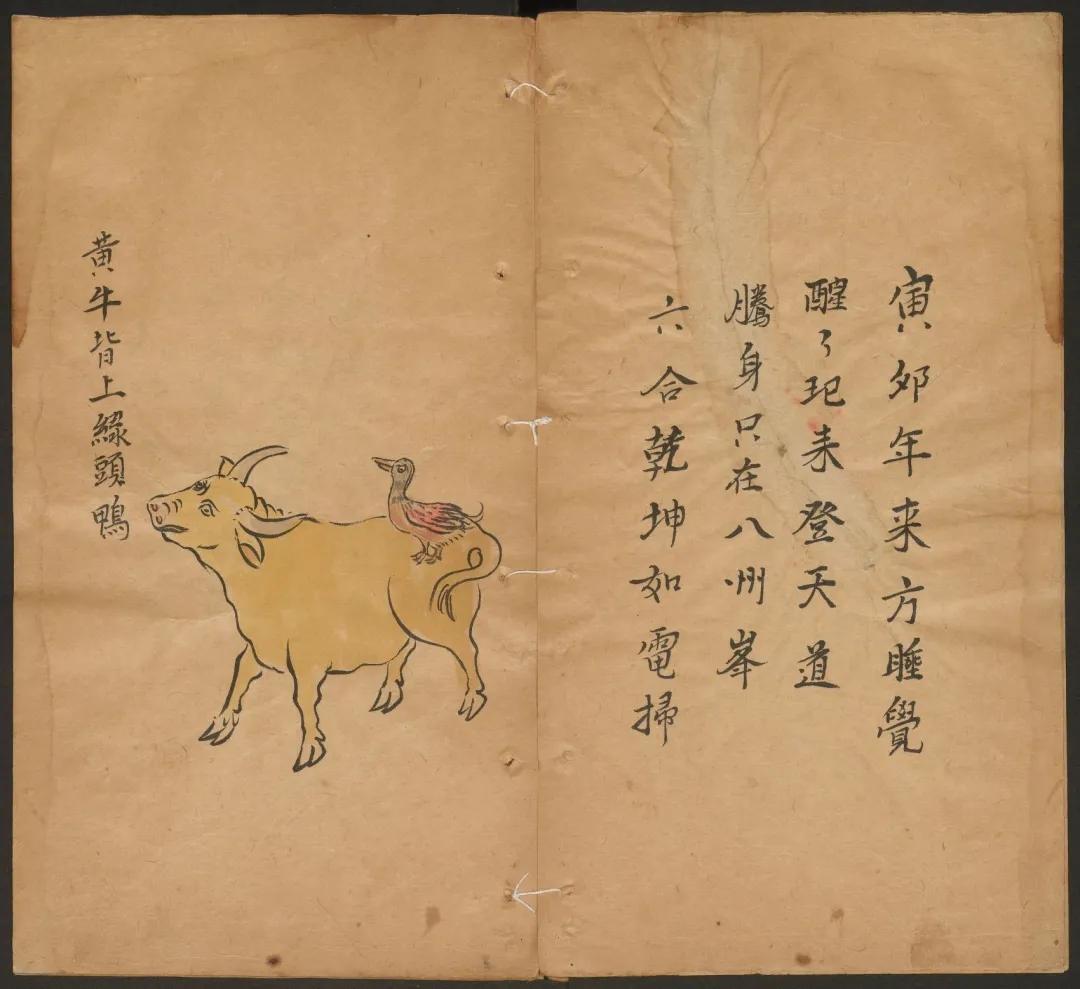 寅夘年来方睡覺
醒了玘耒登天道
騰身只在八州峯
六合乾坤如電掃
黄牛背上綠頭鴨